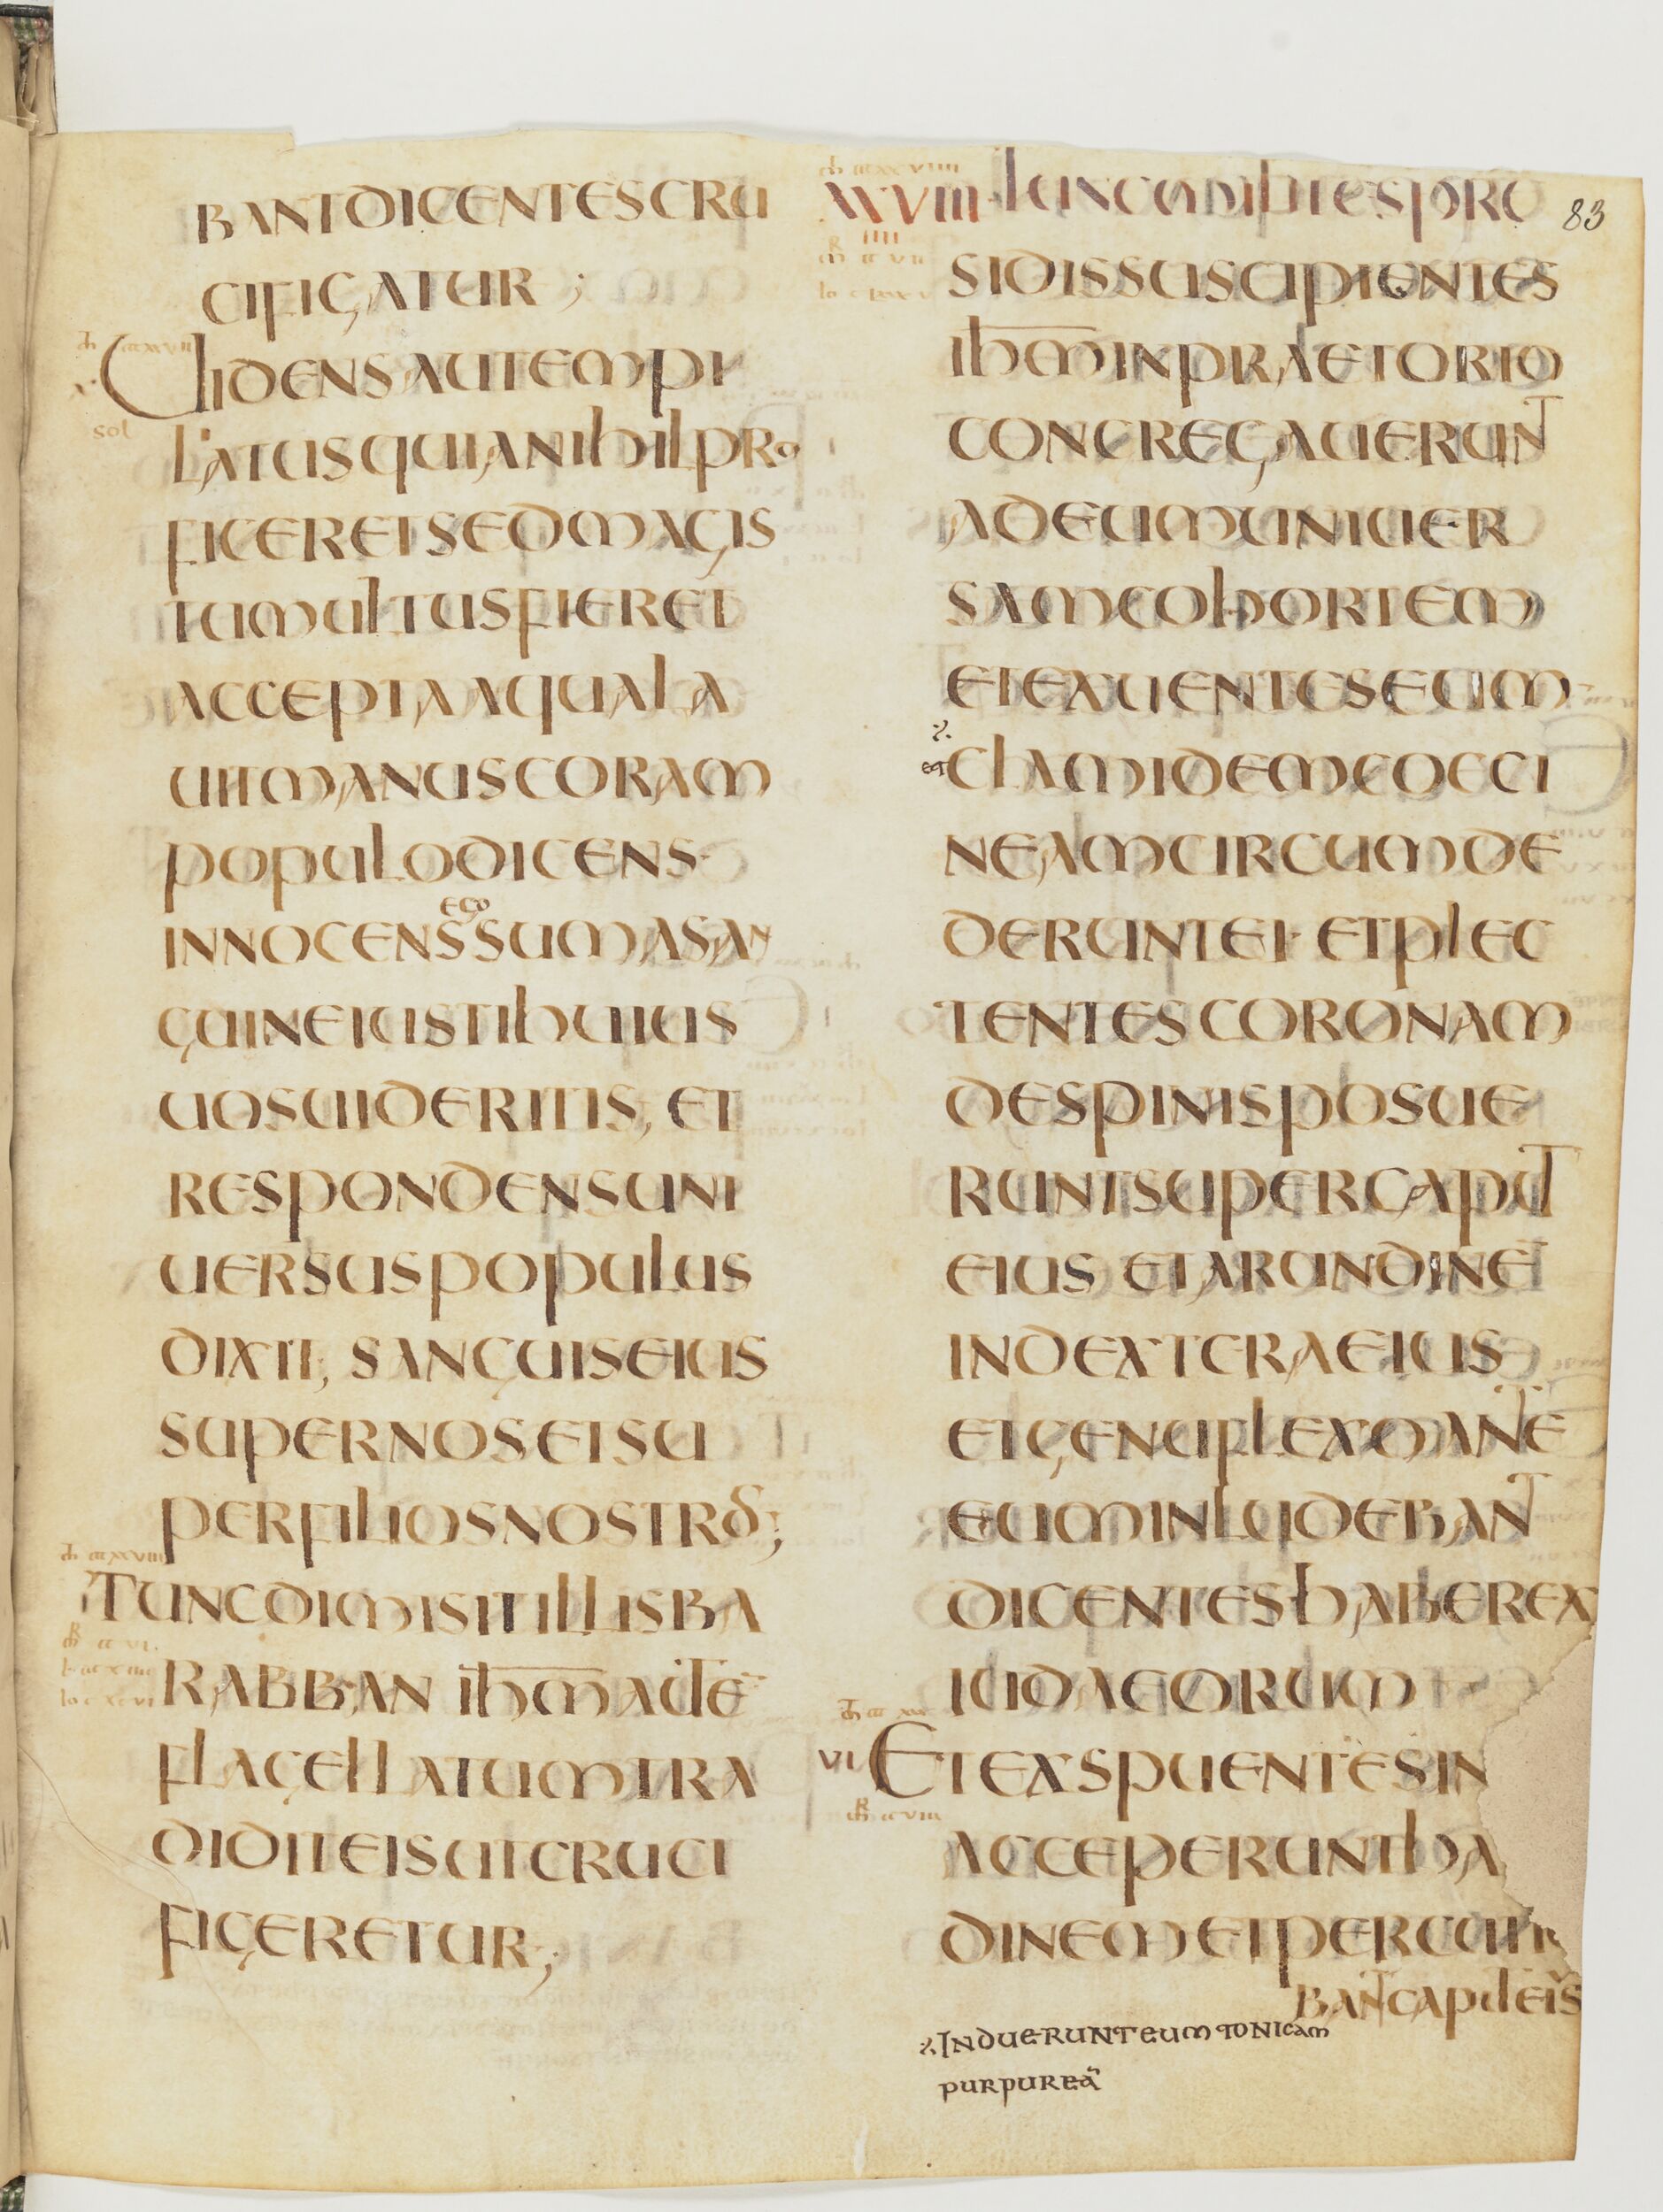 BANTDICENTESCRU
CIFIGATUR ;
UIDENSAUTEMPI
LATUSQUIANIHILPRO
FICERETSEDMAGIS
TUMULTUSFIERET
ACCEPTAAQUALA
UITMANUSCORAM
POPULODICENS·
EGO
INNOCENSSUMASAN
GUINEIUSTIHUIUS
UOSUIDERITIS, ET
RESPONDENSUNI
UERSUSPOPULUS
DIXIT; SANGUISEIUS
SUPERNOSETSU
PERFILIOSNOSTROS;
TUNCDIMISITILLISBA
RABBAN IHMAUTE
FLAGELLATUMTRA
DIDITEISUTCRUCI
FIGERETUR;
XXVIIII TUNCMILITESPRO
SIDISSUSCIPIENTES
IHMINPRAETORIO
CONGREGAUERUNT
ADEUMUNIUER
SAMCOHORTEM
ETEXUENTESEUM
et CLAMIDEMCOCCI
NEAMCIRCUMDE
DERUNTEI· ETPLEC
TENTESCORONAM
DESPINISPOSUE
RUNTSUPERCAPUT
EIUS ETARUNDINE
INDEXTERAEIUS
ETGENUFLEXOANTE
EUMINLUDEBANT
DICENTESHABEREX
IUDAEORUM
VI ETEXSPUENTESIN
ACCEPERUNTHA
DINEMETPERCUTIE
BANTCAPUTEIUS
INDUERUNTEUMTONICAM
PURPUREA
83